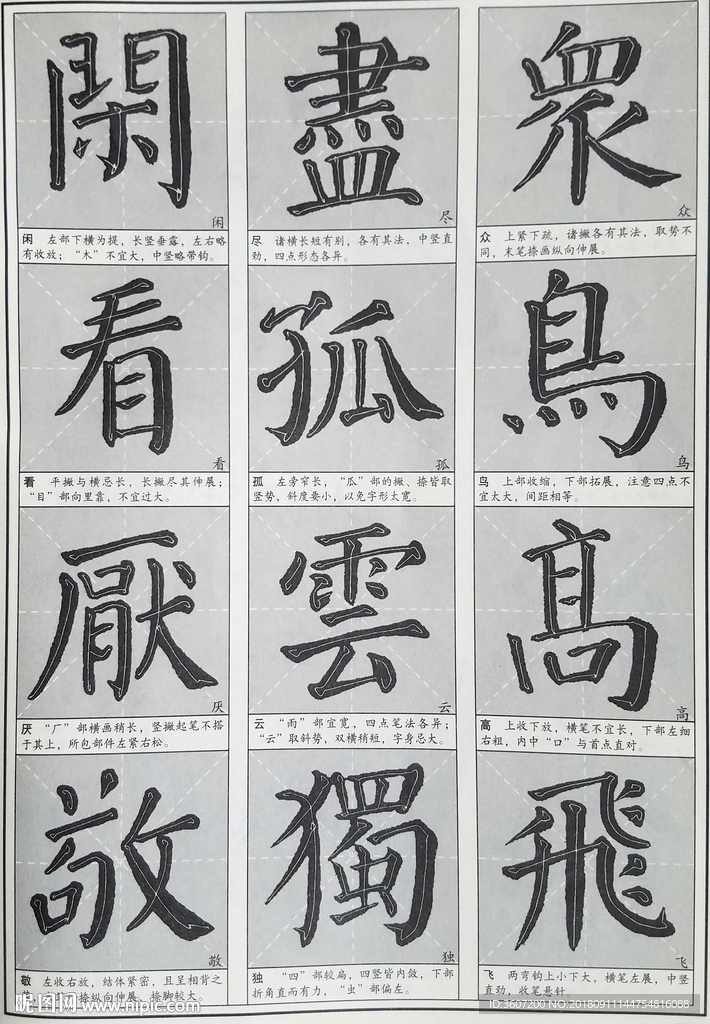 衆
众
众 上紧下疏，诸撇各有其法，取势不
同，末笔捺画纵向伸展。
鳥
鸟
鸟 上部收缩，下部拓展，注意四点不
宜太大，间距相等。
髙
高
高 上收下放，横笔不宜长，下部左细
右粗，内中“口”与首点直对。
飛
飞
飞 两弯钩上小下大，横笔左展，中竖
劲直，收笔悬针。
盡
尽
尽 诸横长短有别，各有其法，中竖直
劲，四点形态各异。
孤
孤
孤 左旁窄长，“瓜”部的撇、捺皆取
竖势，斜度要小，以免字形太宽。
雲
云
云 “雨”部宜宽，四点笔法各异；
“云”取斜势，双横稍短，字身忌大。
獨
独
独 “四”部较扁，四竖皆内敛，下部
折角直而有力，“虫”部偏左。
閑
闲
闲 左部下横为提，长竖垂露，左右略
有收放；“木”不宜大，中竖略带钩。
看
看
看 平撇与横忌长，长撇尽其伸展；
“目”部向里靠，不宜过大。
厭
厌
厌 “厂”部横画稍长，竖撇起笔不搭
于其上，所包部件左紧右松。
敬
敬
敬 左收右放，结体紧密，且呈相背之
捺纵向伸展，捺脚较大。
昵图网 www.nipic.com
ID:3607200 NO:20180911144754816088